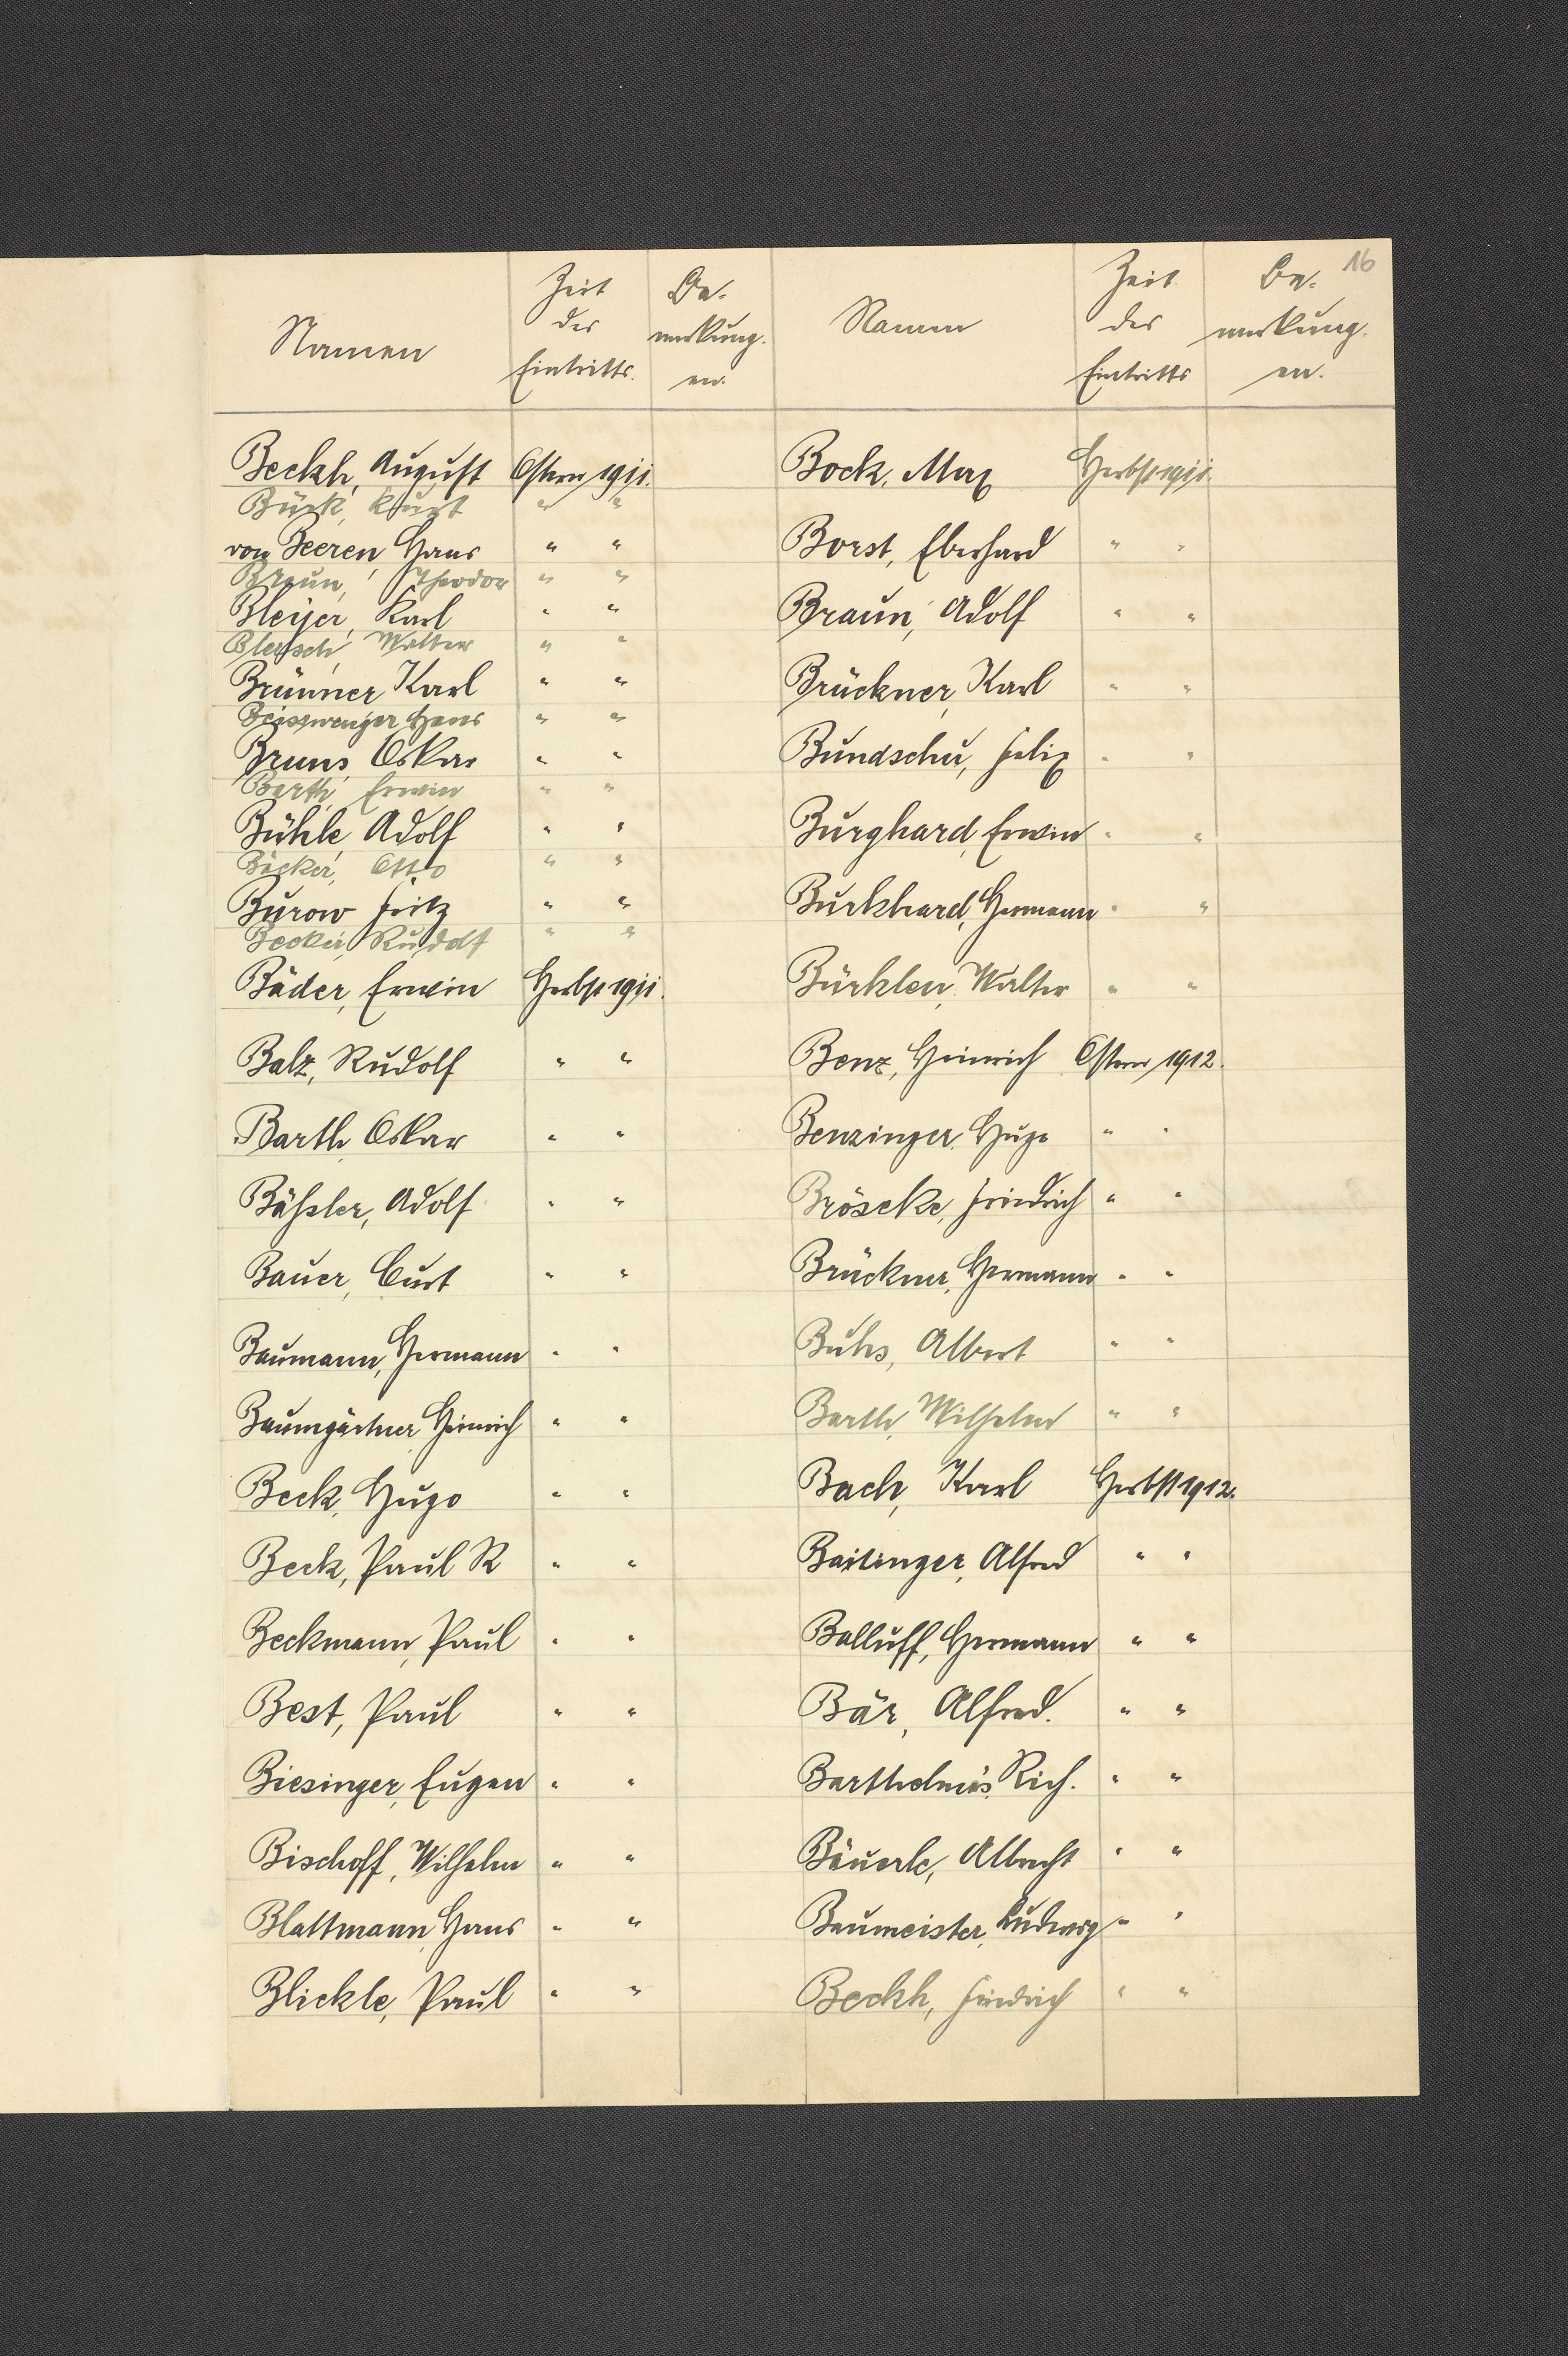 16
Namen
Zeit des Eintritts.
Be-merkung-en.
Beckh, August Ostern 1911.
Bück, Kurt " "
von Beeren, Hans " "
Braun, Theodor " "
Bleyer, Karl " "
Blersch Walter " "
Brünner Karl " "
Beisswenger Hans " "
Bruns, Oskar " "
Barth, Erwin " "
Bühle, Adolf " "
Bäcker, Otto " "
Burow Fritz " "
Becker, Rudolf " "
Bäder, Erwin Herbst 1911.
Balz, Rudolf " "
Barth, Oskar " "
Bäßler, Adolf " "
Bauer, Curt " "
Baumann, Hermann " "
Baumgärtner, Heinrich " "
Beck, Hugo " "
Beck, Paul R " "
Beckmann, Paul " "
Best, Paul " "
Biesinger, Eugen " "
Bischoff, Wilhelm " "
Blattmann, Hans " "
Blickle, Paul " "
Namen
Zeit des Eintritts
Be-merkung-en.
Bock, Max Herbst 1911.
Borst, Eberhard " "
Braun, Adolf " "
Brückner, Karl " "
Bundschu, Felix " "
Burghard, Erwin " "
Burkhard, Hermann " "
Bürklen, Walter " "
Benz, Heinrich Ostern 1912.
Benzinger, Hugo " "
Bröseke, Friedrich " "
Brückner, Hermann " "
Buhs, Albert " "
Barth, Wilhelm " "
Bach, Karl Herbst 1912.
Baitinger, Alfred " "
Balluff, Hermann " "
Bär, Alfred. " "
Barthelmäs, Rich. " "
Bäuerle, Albrecht " "
Baumeister, Ludwig " "
Beckh, Friedrich " "